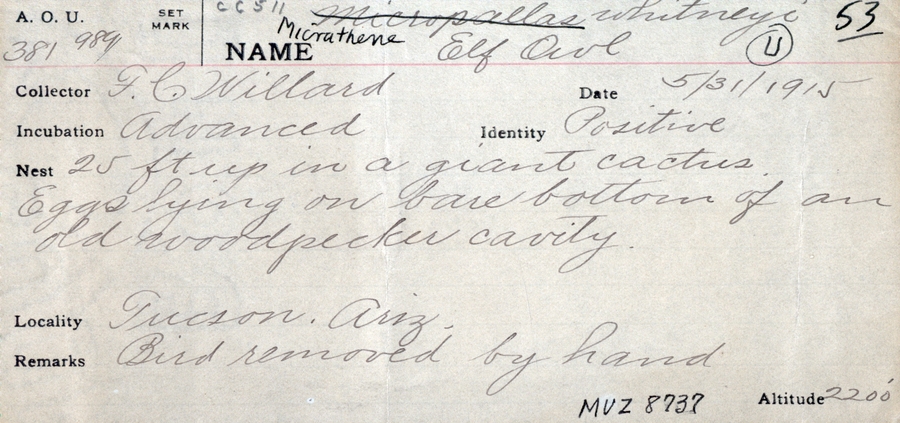 A. O. U. SET MARK CC511 Micropallas whitneyi 53
381 989 NAME Micrathene Elf Owl U
Collector F. C. Willard Date 5/31/1915
Incubation Advanced Identity Positive
Nest 25 ft up in a giant cactus.
Eggs lying on bare bottom of an
old woodpecker cavity.
Locality Tucson. Ariz.
Remarks Bird removed by hand
MVZ 8737 Altitude 2200'